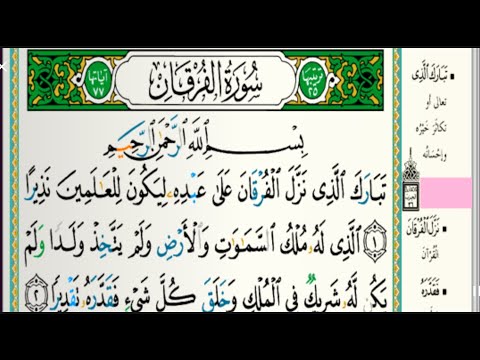 آياتها ٧٧ سُورَةُ الْفُرْقَان ترتيبها ٢٥
بِسْمِ اللَّهِ الرَّحْمَٰنِ الرَّحِيمِ
تَبَارَكَ الَّذِي نَزَّلَ الْفُرْقَانَ عَلَىٰ عَبْدِهِ لِيَكُونَ لِلْعَالَمِينَ نَذِيرًا
١ الَّذِي لَهُ مُلْكُ السَّمَاوَاتِ وَالْأَرْضِ وَلَمْ يَتَّخِذْ وَلَدًا وَلَمْ
يَكُن لَّهُ شَرِيكٌ فِي الْمُلْكِ وَخَلَقَ كُلَّ شَيْءٍ فَقَدَّرَهُ تَقْدِيرًا ٢
تَبَارَكَ الَّذِي
تعالى أو
تكاثَرَ خَيْرُه
وإحْسَانُه
نَزَّلَ الْفُرْقَانَ
القُرْآنَ
فَقَدَّرَهُ